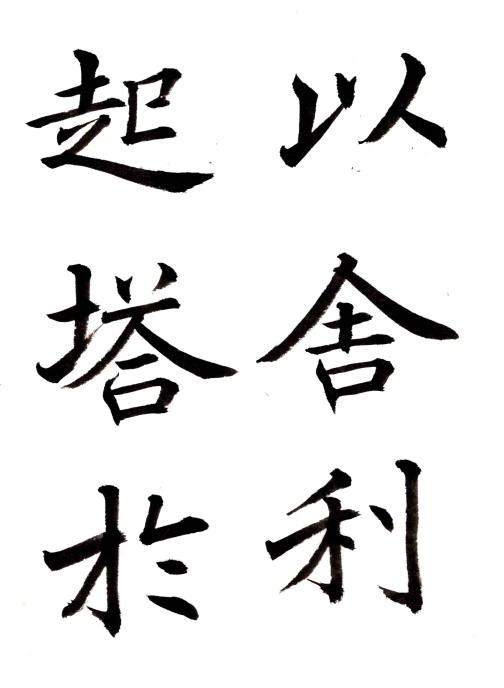 以舍利
起塔於